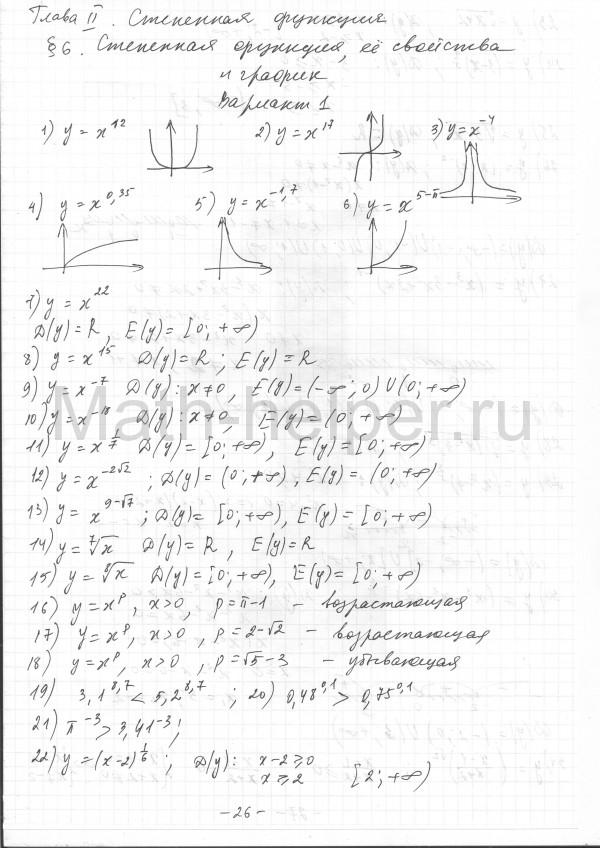 Глава II. Степенная функция
§ 6. Степенная функция, её свойства
и график
Вариант 1
1) y = x^12 2) y = x^17 3) y = x^-4
4) y = x^0,35 5) y = x^-1,7 6) y = x^5-π
7) y = x^22
D(y) = R, E(y) = [0; +∞)
8) y = x^15 D(y) = R; E(y) = R
9) y = x^-7 D(y): x≠0, E(y) = (-∞; 0) U (0; +∞)
10) y = x^-18 D(y): x≠0, E(y) = (0; +∞)
11) y = x^1/7 D(y) = [0; +∞), E(y) = [0; +∞)
12) y = x^-2√2; D(y) = (0; +∞), E(y) = (0; +∞)
13) y = x^9-√7; D(y) = [0; +∞), E(y) = [0; +∞)
14) y = ⁷√x D(y) = R, E(y) = R
15) y = ⁸√x D(y) = [0; +∞), E(y) = [0; +∞)
16) y = x^p, x>0, p = π-1 - возрастающая
17) y = x^p, x>0, p = 2-√2 - возрастающая
18) y = x^p, x>0, p = √5-3 - убывающая
19) 3,1^8,7 < 5,2^8,7; 20) 0,48^0,1 > 0,75^0,1
21) π^-3 > 3,41^-3;
22) y = (x-2)^1/6; D(y): x-2≥0
x≥2 [2; +∞)
-26-
Math-helper.ru